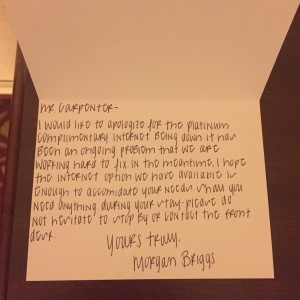 Mr Carpenter-
I would like to apologize for the platinum
complimentary internet being down it has
been an ongoing problem that we are
working hard to fix in the meantime. I hope
the internet option we have available is
enough to accomidate your needs. Shall you
need anything during your stay. please do
not hesitate to stop by or contact the front
desk.
Yours truly,
Morgan Briggs